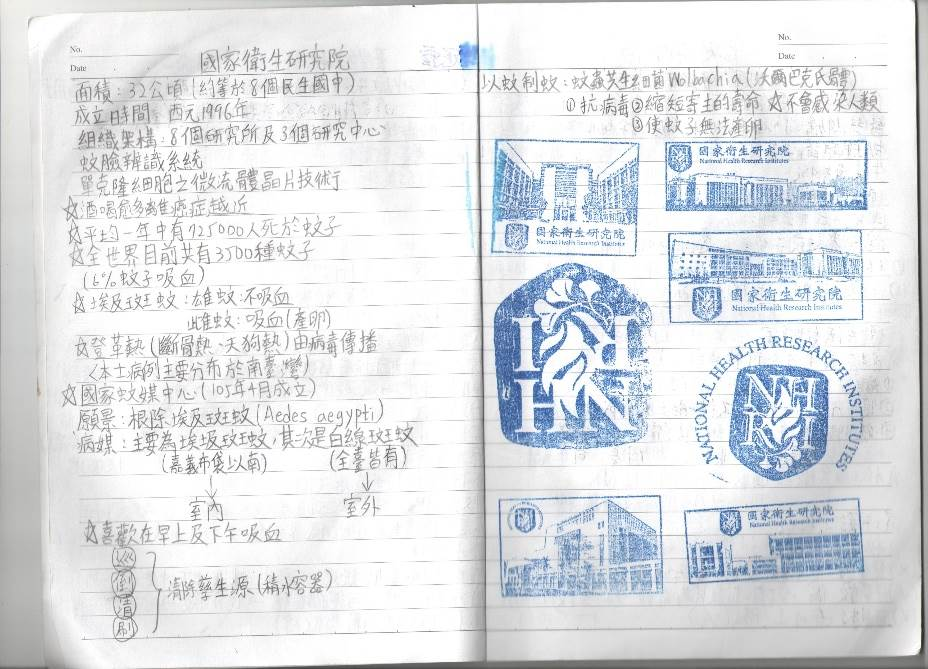 No.
Date
國家衛生研究院
面積：32公頃（約等於8個民生國中）
成立時間：西元1996年
組織架構：8個研究所及3個研究中心
蚊臉辨識系統
單克隆細胞之微流體晶片技術行
☆酒喝愈多離癌症越近
☆平均一年中有725000人死於蚊子
☆全世界目前共有3500種蚊子
(6%蚊子吸血)
☆埃及斑蚊：雄蚊：不吸血
雌蚊：吸血(產卵)
☆登革熱(斷骨熱、天狗熱)由病毒傳播
<本土病例主要分布於南臺灣>
☆國家蚊媒中心(105年4月成立)
願景：根除埃及斑蚊(Aedes aegypti)
病媒：主要為埃及斑蚊，其次是白線斑蚊
(嘉義布袋以南) (全臺皆有)
↓ ↓
室內 室外
☆喜歡在早上及下午吸血
巡
倒
清
刷
清除孳生源(積水容器)
No.
Date
以蚊制蚊：蚊蟲共生細菌Wolbachia(沃爾巴克氏體)
①抗病毒②縮短寄主的壽命 ☆不會感染人類
③使蚊子無法產卵
國家衛生研究院
National Health Research Institutes
國家衛生研究院
National Health Research Institutes
國家衛生研究院
National Health Research Institutes
NHRI
NATIONAL HEALTH RESEARCH INSTITUTES
NHRI
國家衛生研究院
National Health Research Institutes